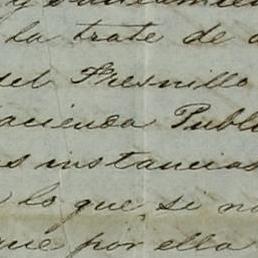 la trate de
del Fresnillo
acienda Publ
s instancias
lo que se no
que por ella